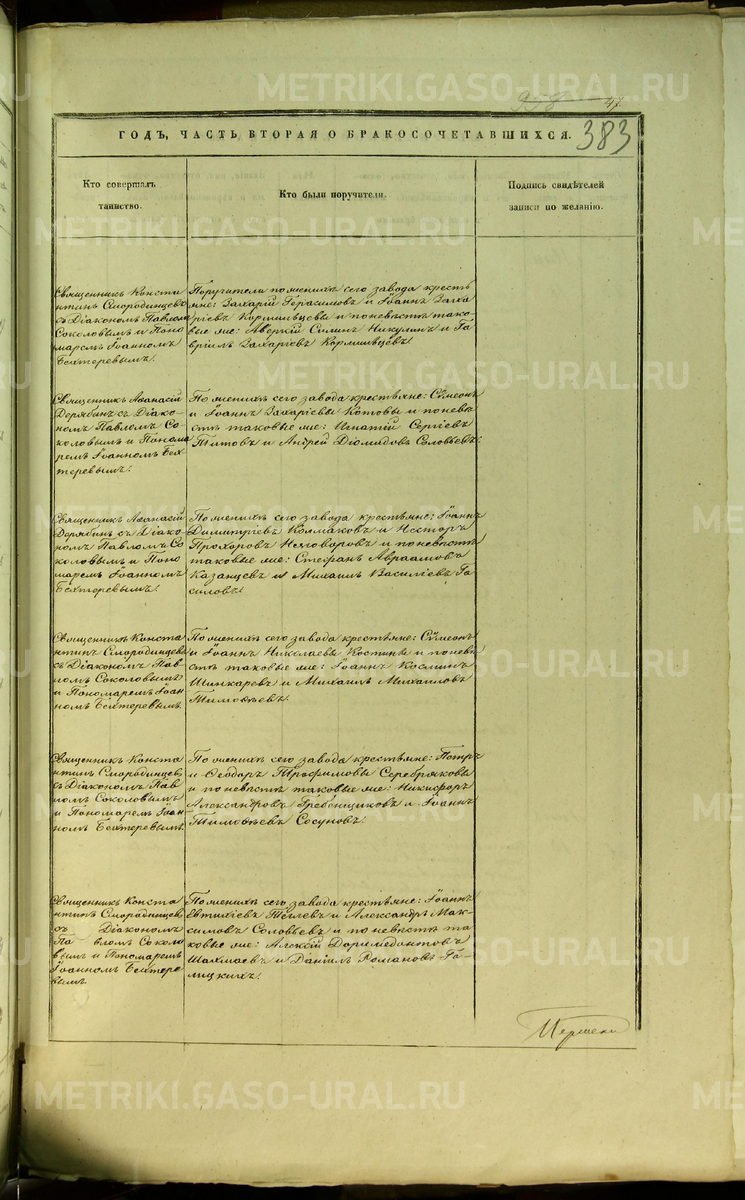 METRIKI.GASO-URAL.RU
958 47
ГОДЪ, ЧАСТЬ ВТОРАЯ О БРАКОСОЧЕТАВШИХСЯ.
383
Кто совершалъ
таинство.
Кто были поручители.
Подпись свидѣтелей
записи по желанію.
Священникъ Конста
нтинъ Смородинцевъ
съ Діакономъ Павломъ
Соколовымъ и Поно
маремъ Іоанномъ
Бехтеревымъ.
Поручители по женихѣ сего завода кресть
яне: Захарій Герасимовъ и Іоаннъ Заха
ріевъ Кормильцевы и по невѣстѣ тако
вые же: Аверкій Силинъ Никулинъ и Га
вріилъ Захаріевъ Кормильцевъ.
Священникъ Аѳанасій
Дерябинъ съ Діако
номъ Павломъ Со
коловымъ и Понома
ремъ Іоанномъ Бех
теревымъ.
По женихѣ сего завода крестьяне: Сѵмеонъ
и Іоаннъ Захаріевы Котовы и по невѣ
стѣ таковые же: Игнатій Сергіевъ
Титовъ и Андрей Діомидовъ Соловьевъ.
Священникъ Аѳанасій
Дерябинъ съ Діако
номъ Павломъ Со
коловымъ и Поно
маремъ Іоанномъ
Бехтеревымъ.
По женихѣ сего завода крестьяне: Іоаннъ
Димитріевъ Колмаковъ и Несторъ
Прохоровъ Неговоровъ и по невѣстѣ
таковые же: Стефанъ Авраамовъ
Казанцевъ и Михаилъ Василіевъ Га
силовъ.
Священникъ Конста
нтинъ Смородинцевъ
съ Діакономъ Пав
ломъ Соколовымъ
и Пономаремъ Іоан
номъ Бехтеревымъ.
По женихѣ сего завода крестьяне: Сѵмеонъ
и Іоаннъ Николаевы Костины и по невѣ
стѣ таковые же: Іоаннъ Козминъ
Шинкаревъ и Михаилъ Михаиловъ
Тимоѳеевъ.
Священникъ Конста
нтинъ Смородинцевъ
съ Діакономъ Пав
ломъ Соколовымъ
и Пономаремъ Іоан
номъ Бехтеревымъ.
По женихѣ сего завода крестьяне: Петръ
и Ѳеодоръ Трофимовы Серебряковы
и по невѣстѣ таковые же: Никифоръ
Александровъ Гребенщиковъ и Іоаннъ
Тимоѳеевъ Сосуновъ.
Священникъ Конста
нтинъ Смородинцевъ
съ Діакономъ
Павломъ Соколо
вымъ и Пономаремъ
Іоанномъ Бехтере
вымъ.
По женихѣ сего завода крестьяне: Іоаннъ
Евтихіевъ Тегіевъ и Александръ Мак
симовъ Соловьевъ и по невѣстѣ та
ковые же: Алексій Доримедонтовъ
Шахмаевъ и Даніилъ Романовъ Га
лицкихъ.